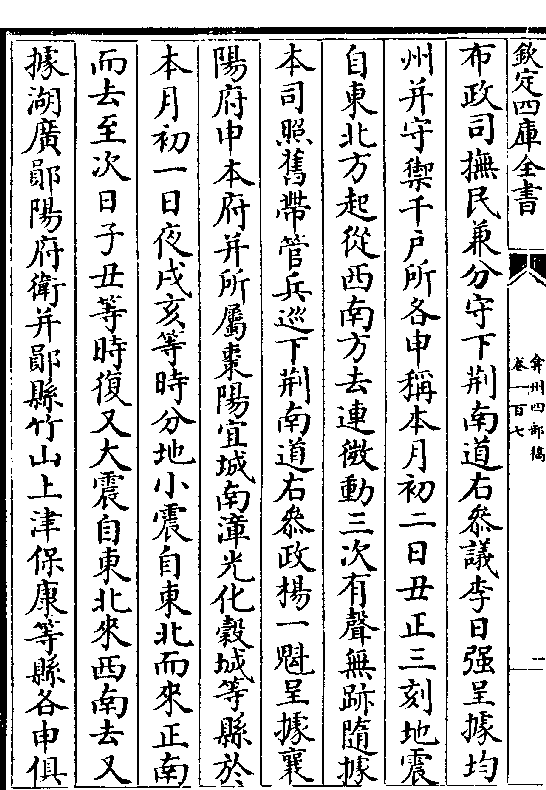 欽定四庫全書
弇州四部稿
卷一百七
一
布政司撫民兼分守下荆南道右叅議李日强呈據均
州并守禦千戶所各申稱本月初二日丑正三刻地震
自東北方起從西南方去連微動三次有聲無跡隨據
本司照舊帶管兵巡下荆南道右叅政楊一魁呈據襄
陽府申本府并所屬棗陽宜城南漳光化穀城等縣於
本月初一日夜戌亥等時分地小震自東北而來正南
而去至次日子丑等時復又大震自東北來西南去又
據湖廣鄖陽府衛并鄖縣竹山上津保康等縣各申俱